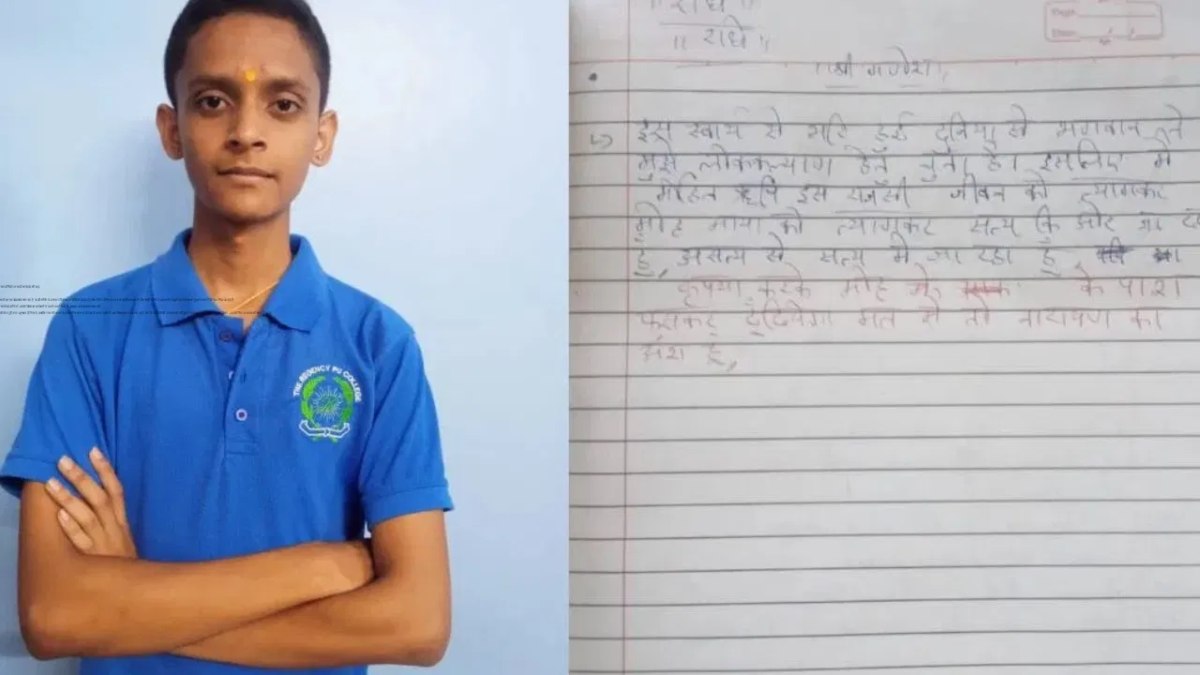 THE REGENCY PU COLLEGE
॥ राधे ॥
॥ राधे ॥
॥ श्री गणेशा ॥
इस स्वार्थ से भरि हुई दुनिया से भगवान ने
मुझे लोककल्याण हेतु चुना है। इसलिए मैं
मोहित ऋषि इस जीवन को त्यागकर
मोह माया को त्यागकर सत्य कि ओर जा
हूँ, असत्य से सत्य मे जा रहा हूँ,
कृपया करके मोह के पाश
फसकर मत मे तो नारायण का
अंश हूँ,